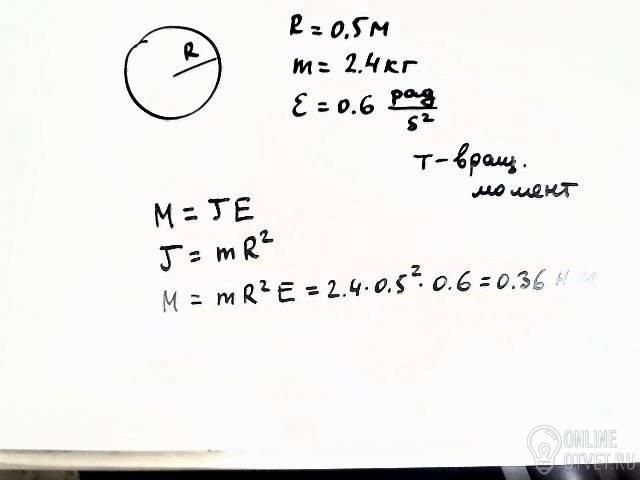 R
R = 0.5 м
m = 2.4 кг
ε = 0.6 рад/s²
т - вращ.
момент
M = JE
J = mR²
M = mR²E = 2.4 · 0.5² · 0.6 = 0.36 н м
ONLINE
OTVET.RU